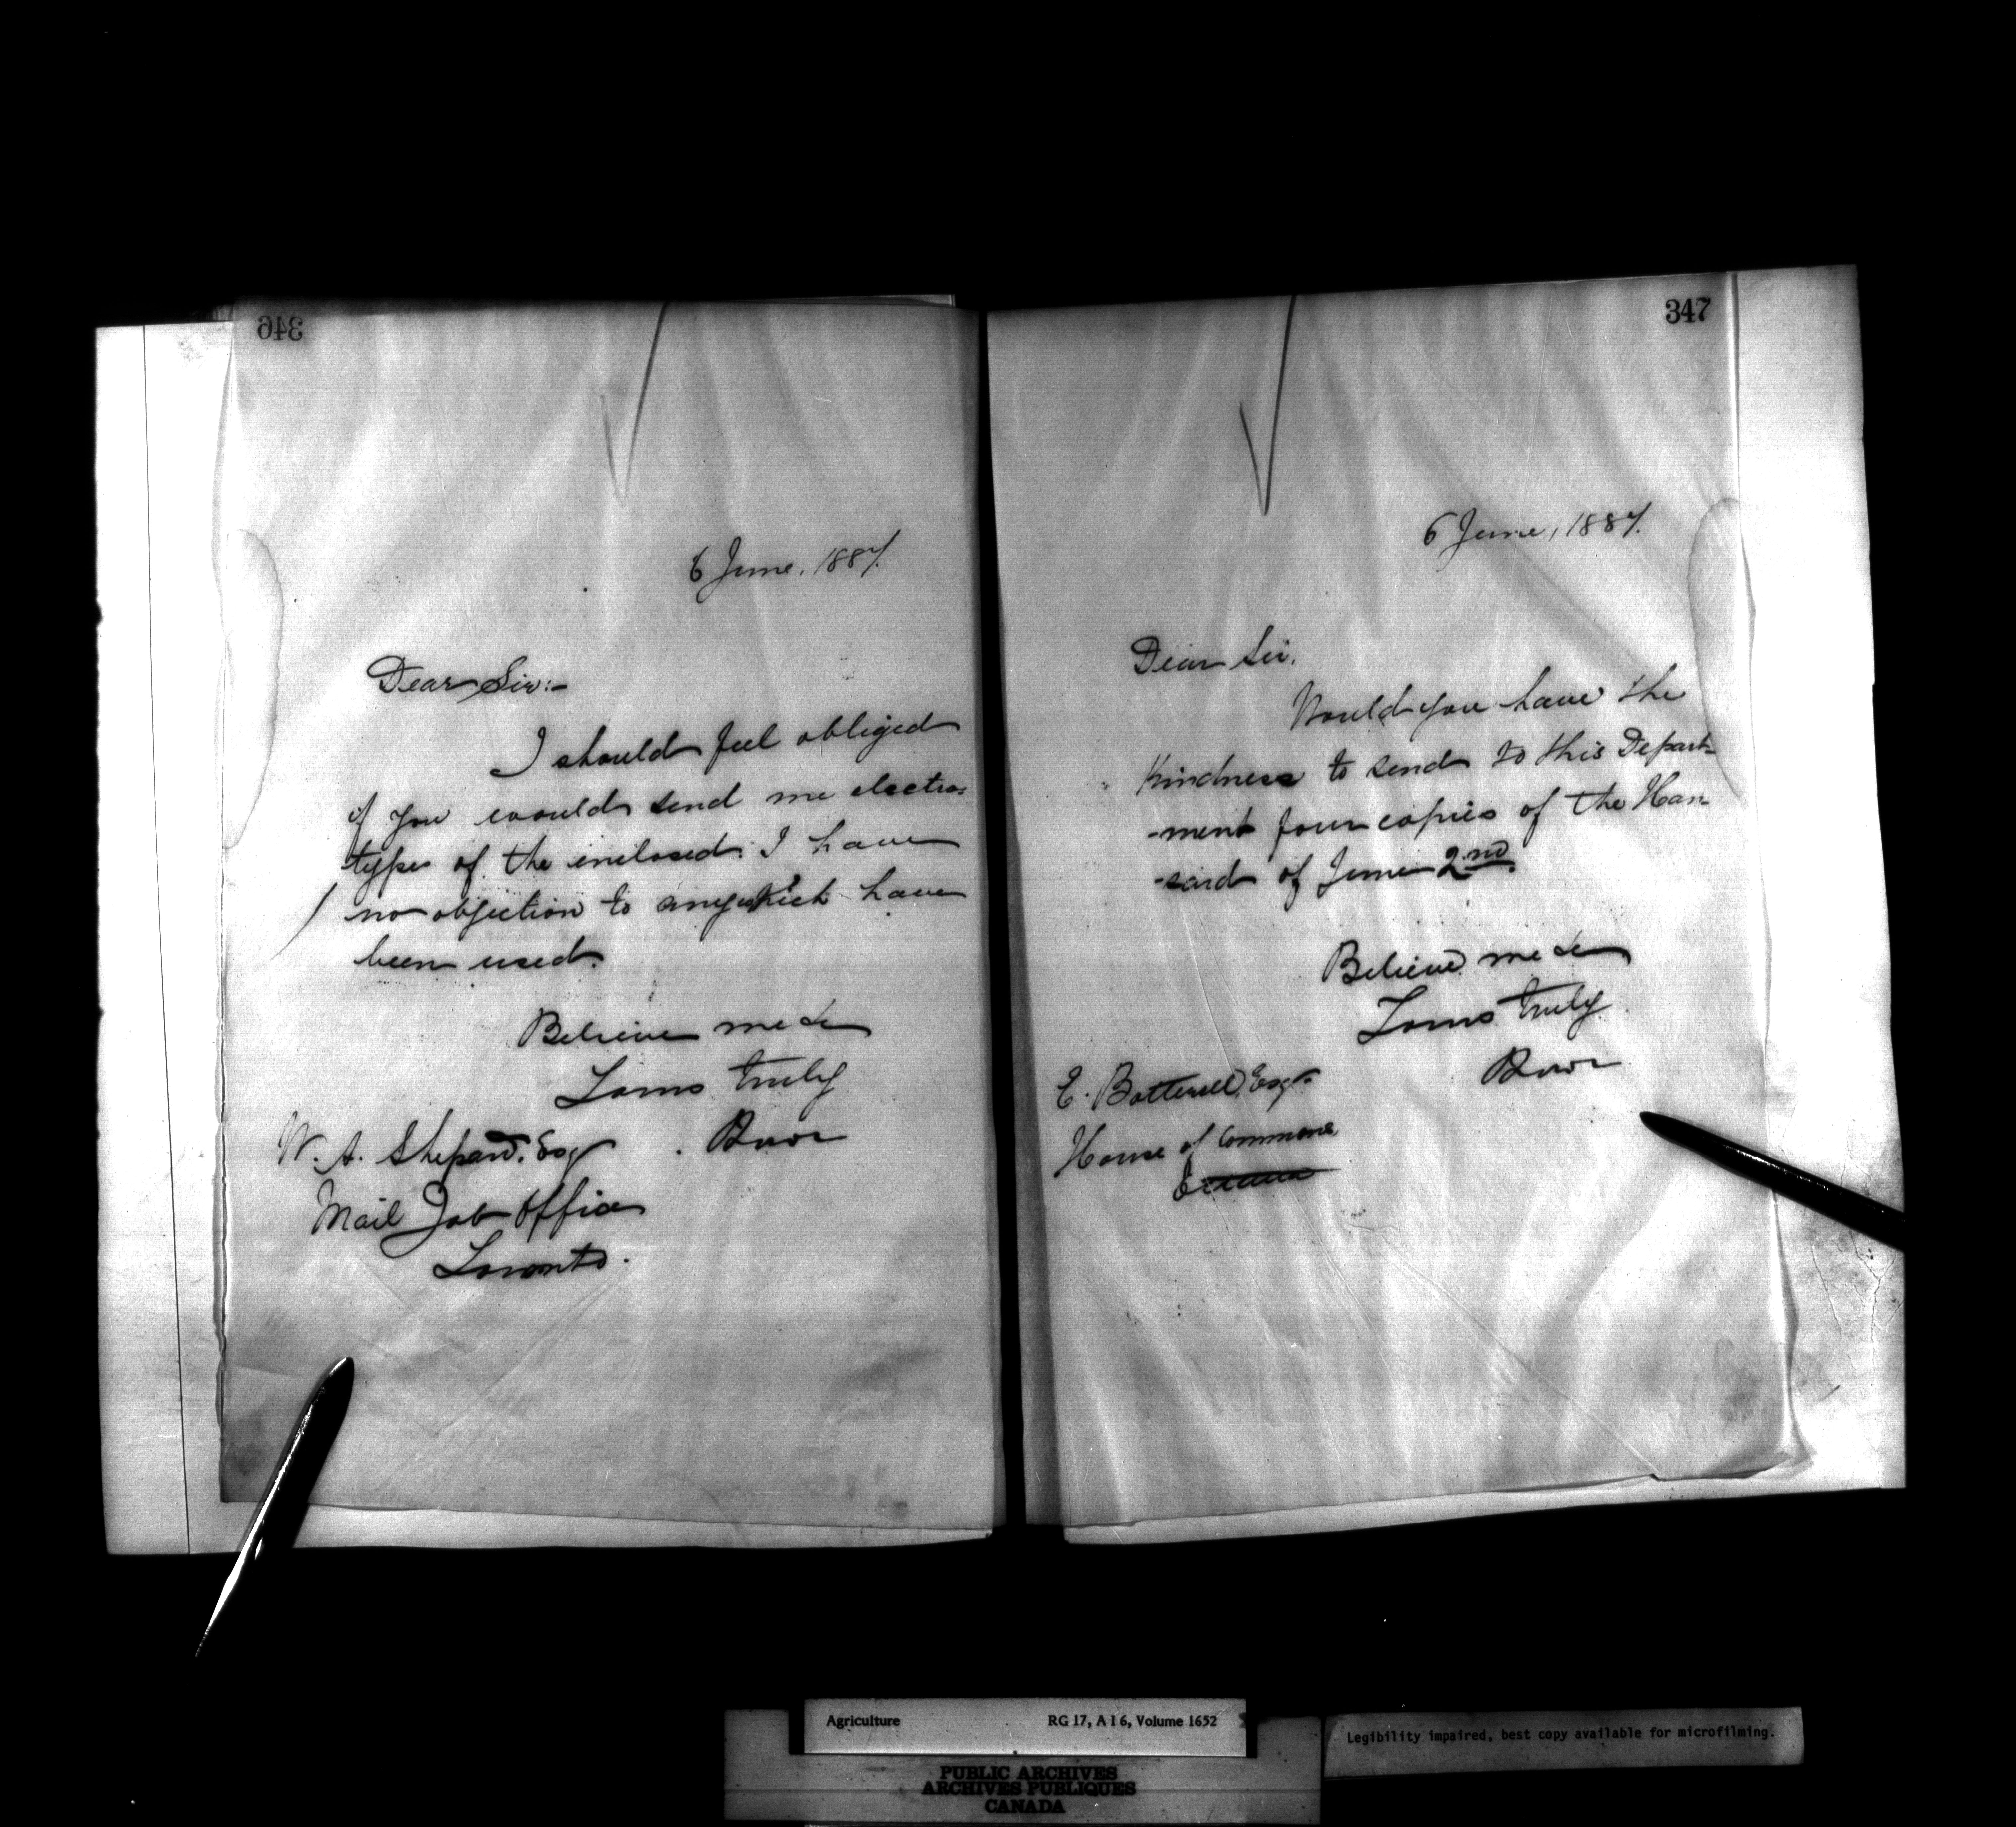 346
6 June, 1887.
Dear Sir:-
I should feel obliged
if you would send me electro-
types of the inclosed. I have
no objection to any which have
been used.
Believe me &c
Yours truly
W. A. Shepard, Esq
Mail Job Office
Toronto.
347
6 June, 1887.
Dear Sir,
Would you have the
kindness to send to this Depart-
-ment four copies of the Han
-sard of June 2nd.
Believe me &c
Yours truly
E. Botterell, Esqr
House of Commons
Ottawa
Agriculture RG 17, A I 6, Volume 1652
PUBLIC ARCHIVES
ARCHIVES PUBLIQUES
CANADA
Legibility impaired, best copy available for microfilming.